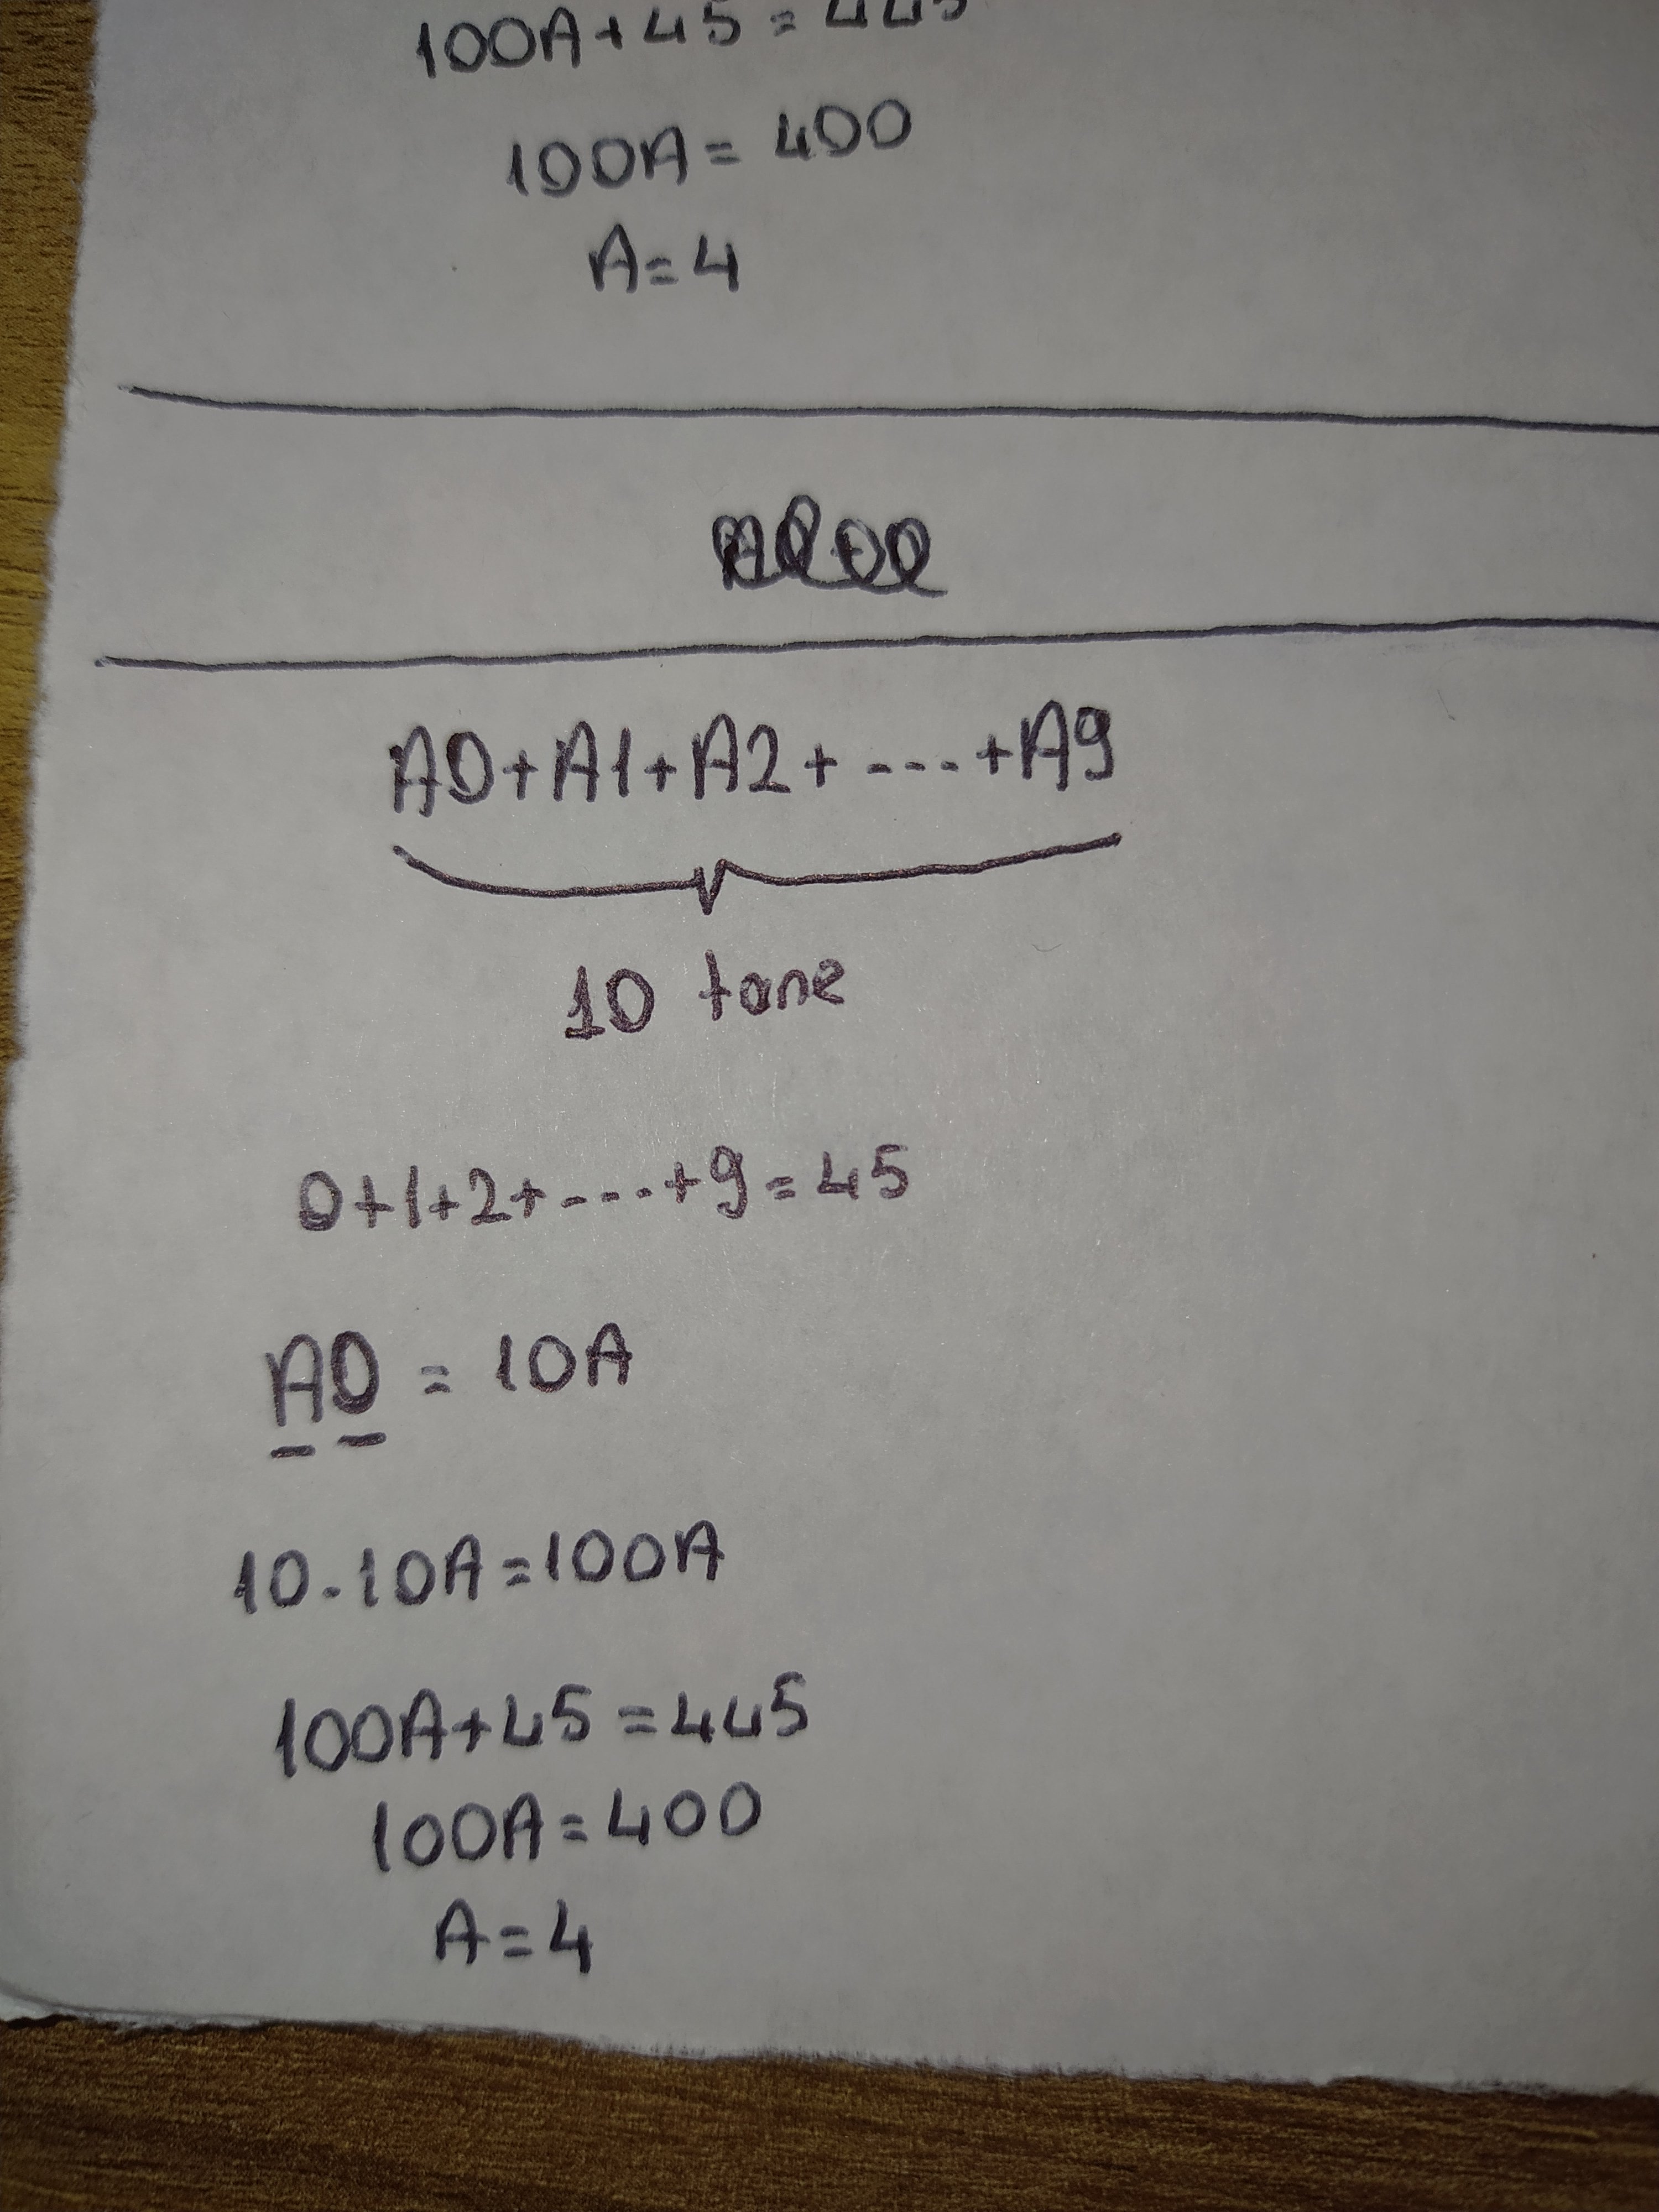 100A+45=445
100A=400
A=4
A0+A1+A2+----+A9
10 tane
0+1+2+----+9=45
A0 = 10A
10.10A=100A
100A+45=445
100A=400
A=4